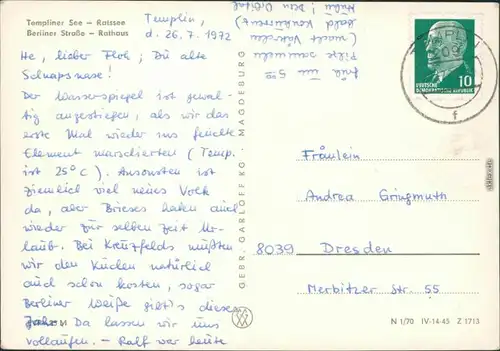 Templiner See — Ratssee
Berliner Straße — Rathaus
Templin,
d. 26.7.1972
He, lieber Floh; Du alte
Schnapsnase!
Der Wasserspiegel ist gewal-
tig angestiegen, als wir das
erste Mal wieder ins feuchte
Element marschierten (Temp.
ist 25° C). Ansonsten ist
ziemlich viel neues Volk
da, aber Brieses haben auch
wieder zur selben Zeit Ur-
laub. Bei Kreuzfelds mußten
wir den Kuchen natürlich
auch schon kosten, sogar
Berliner Weiße gibt's dieses
Jahr. Da lassen wir uns
vollaufen. — Ralf war heute
früh um 5°°
Pilze sammeln
(macht
bald Konkurrenz)
GEBR. GARLOFF KG MAGDEBURG
10
DEUTSCHE
DEMOKRATISCHE REPUBLIK
f
Fräulein
Andrea Gringmuth
8039 Dresden
Merbitzer Str. 55
N 1/70 IV-14-45 Z 1713